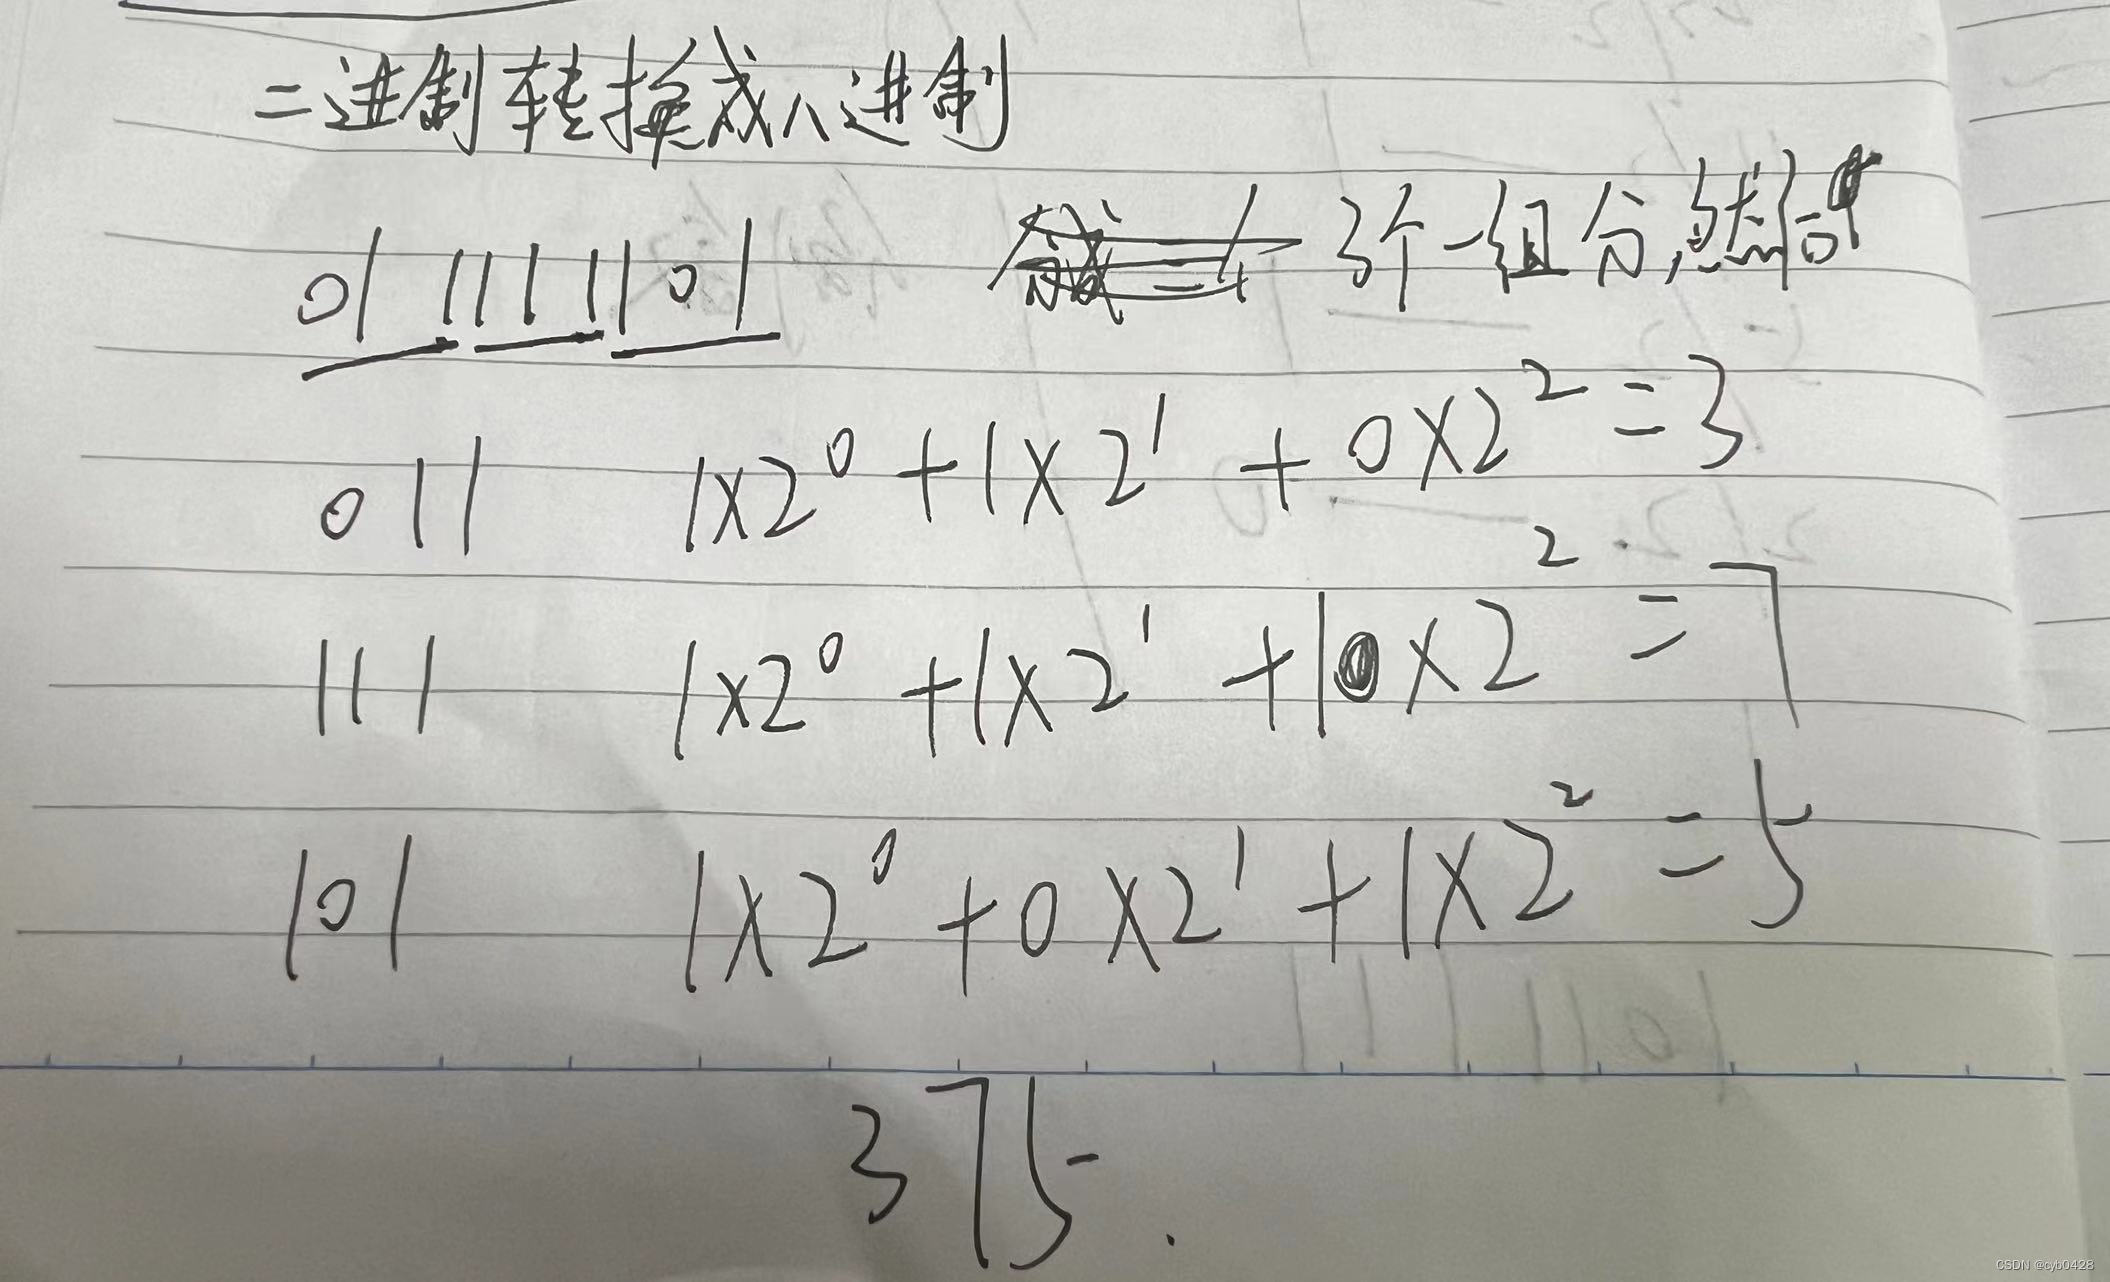 二进制转换成八进制
3个一组分,然后
011111101
011 1×2⁰+1×2¹+0×2²=3
111 1×2⁰+1×2¹+1×2²=7
101 1×2⁰+0×2¹+1×2²=5
375.
CSDN @cyb0428